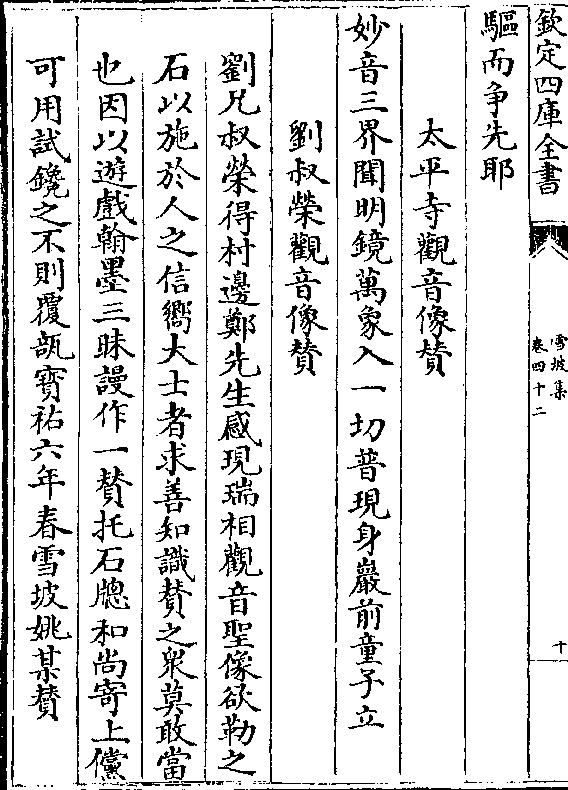 欽定四庫全書
雪坡集
卷四十二
十
驅而争先耶
太平寺觀音像賛
妙音三界聞明鏡萬象入一切普現身巖前童子立
劉叔榮觀音像賛
劉兄叔榮得村邊鄭先生感現瑞相觀音聖像欲勒之
石以施於人之信嚮大士者求善知識賛之衆莫敢當
也因以遊戲翰墨三昧謾作一賛托石牕和尚寄上儻
可用試鑱之不則覆瓿寳祐六年春雪坡姚某賛